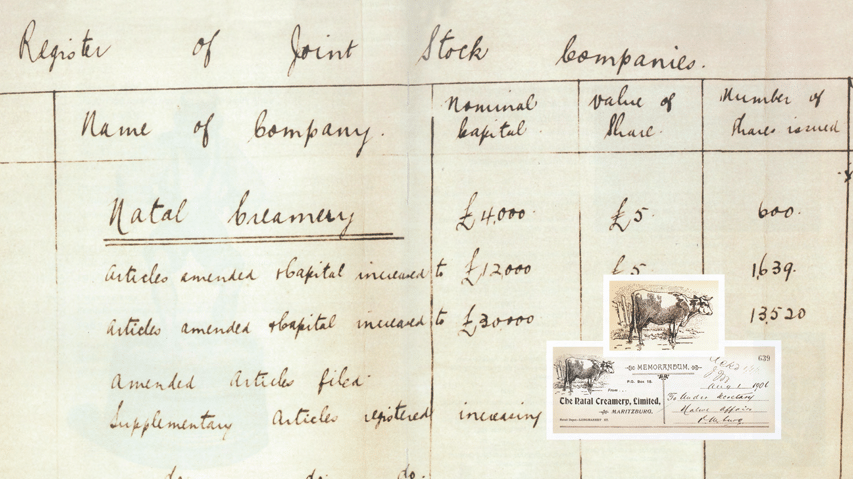 Register of Joint Stock Companies.
Name of Company.
Nominal Capital
Value of Share.
Number of shares issued
Natal Creamery
£4,000
£5
600.
Articles amended & Capital increased to £12000 £5 1,639.
Articles amended & Capital increased to £30000 13,520
Amended Articles filed
Supplementary Articles registered increasing
do. do. do.
639
MEMORANDUM.
P.O. Box 18.
From
The Natal Creamery, Limited,
MARITZBURG,
1906
To Under Secretary
Native Affairs